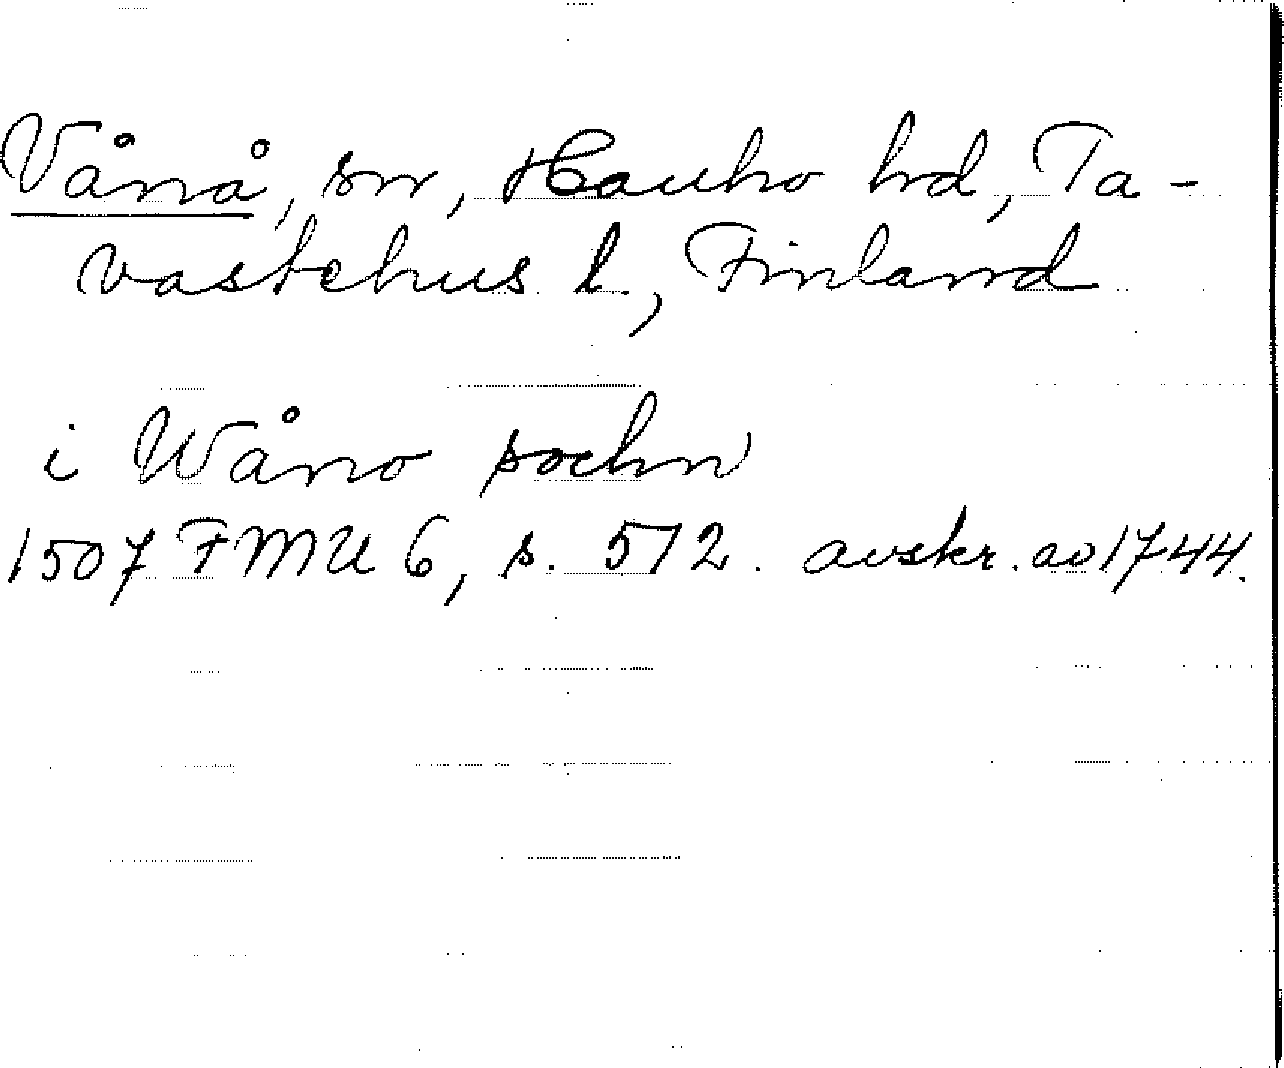 Vånå, sn, Hauho hd, Ta-
vastehus l., Finland
i Wåno sochn
1507 FMU 6, s. 572. avskr. ao 1744.